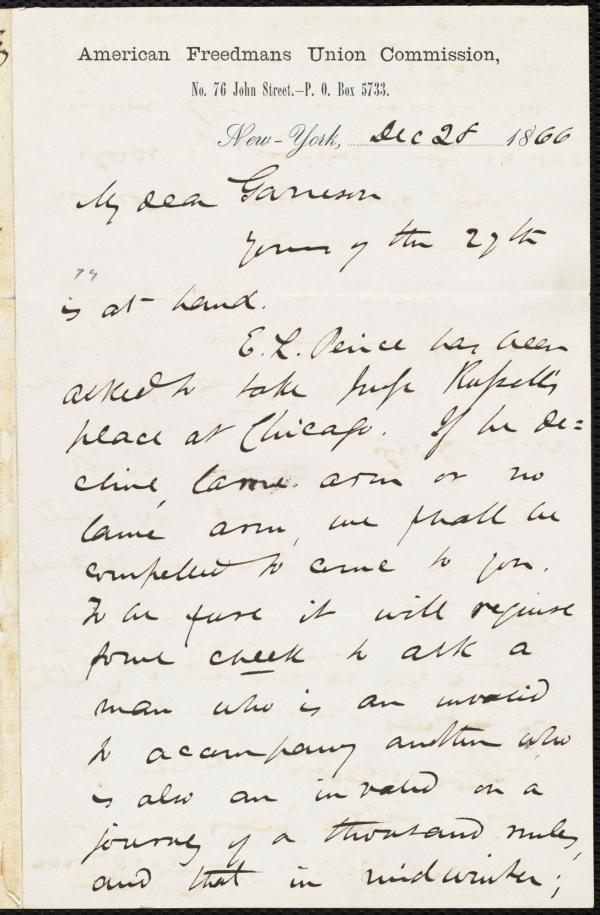 American Freedmans Union Commission,
No. 76 John Street.—P. O. Box 5733.
New-York, Dec 28 1866
My dear Garrison
Yours of the 27th
is at hand.
E. L. Peirce has been
asked to take Russell's
place at Chicago. If he de=
cline, lame arm or no
lame arm, we shall be
compelled to come to you.
To be sure it will require
some cheek to ask a
man who is an invalid
to accompany another who
is also an invalid on a
journey of a thousand miles,
and that in midwinter;